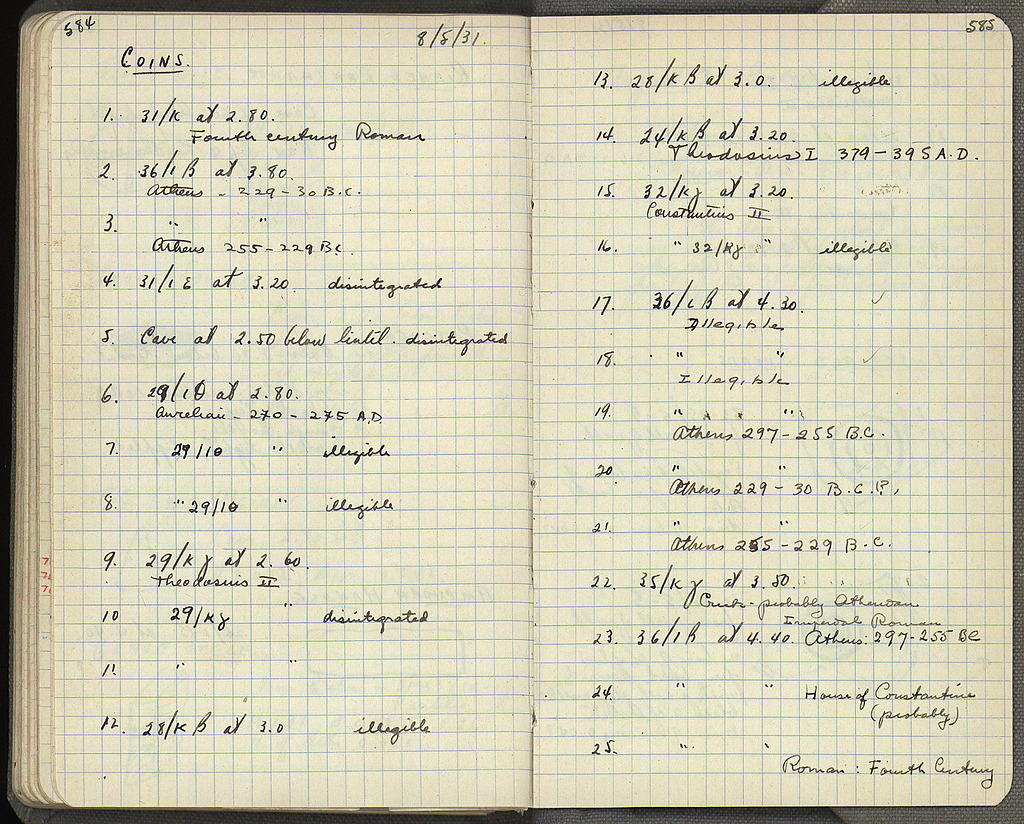 584
8/5/31.
COINS.
1. 31/K at 2.80.
Fourth century Roman
2. 36/ΙΒ at 3.80.
Athens - 229-30 B.C.
3. " "
Athens 255-229 B.C.
4. 31/Ι Ε at 3.20. disintegrated
5. Cave at 2.50 below lintil. disintegrated
6. 29/ΙΘ at 2.80.
Aurelian - 270 - 275 A.D.
7. 29/ΙΘ " illegible
8. " 29/ΙΘ " illegible
9. 29/Κγ at 2.60.
Theodosius II
10 29/Κγ " disintegrated
11. " "
12. 28/Κ Β at 3.0 illegible
585
13. 28/Κ Β at 3.0. illegible
14. 24/Κ Β at 3.20.
Theodosius I 379-395 A.D.
15. 32/Κγ at 3.20.
Constantius II
16. " 32/Κγ " illegible
17. 36/Ι Β at 4.30. ✓
Illegible
18. " " ✓
Illegible
19. " "
Athens 297-255 B.C.
20. " "
Athens 229-30 B.C.?,
21. " "
Athens 255-229 B.C.
22. 35/Κγ at 3.50
Crude - probably Athenian
Imperial Roman
23. 36/ΙΒ at 4.40. Athens: 297-255 BC
24. " " House of Constantine
(probably)
25. " "
Roman: Fourth Century